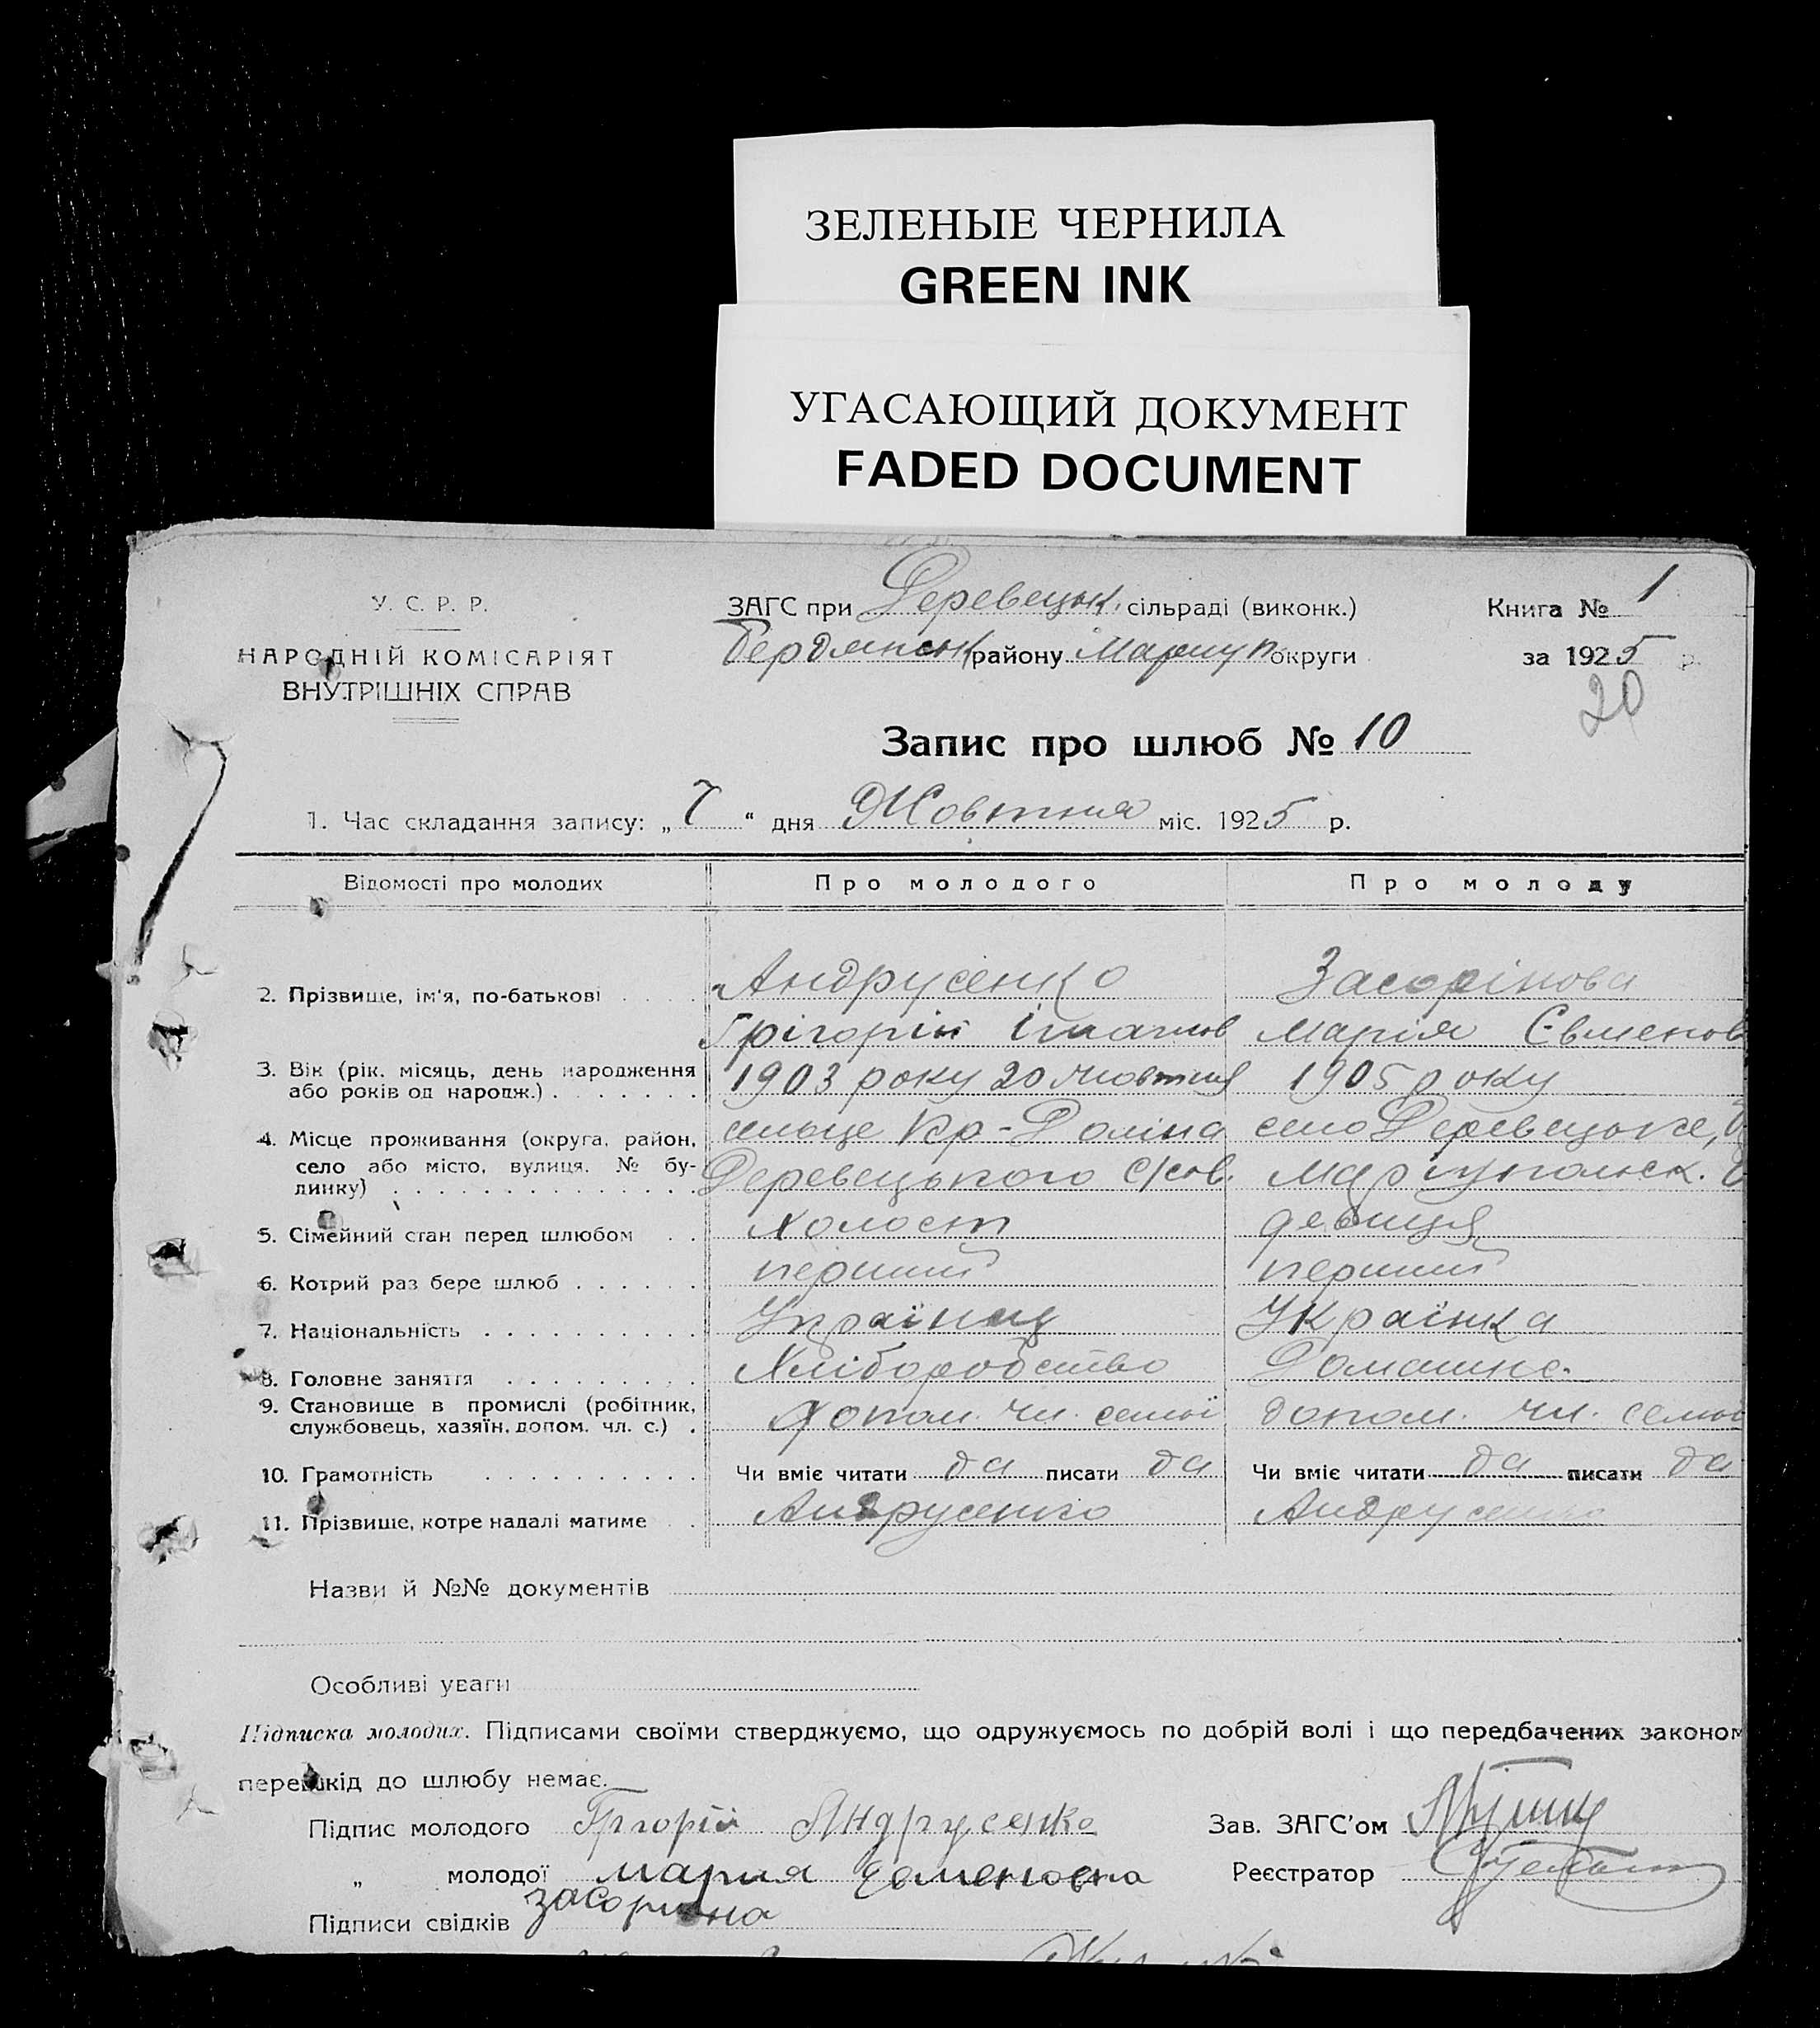 ЗЕЛЕНЫЕ ЧЕРНИЛА
GREEN INK
УГАСАЮЩИЙ ДОКУМЕНТ
FADED DOCUMENT
У. С. Р. Р.
НАРОДНІЙ КОМІСАРІЯТ
ВНУТРІШНІХ СПРАВ
ЗАГС при Деревецьк. сільраді (виконк.)
Бердянськ району Маріуп округи
Книга № 1
за 1925 р.
20
Запис про шлюб № 10
1. Час складання запису: „7“ дня Жовтня міс. 1925 р.
Відомості про молодих Про молодого Про молоду
Андрусенко Засорінова
2. Прізвище, ім'я, по-батькові
Грігорій Марія Євменов
3. Вік (рік, місяць, день народження 1903 року 20 жовтня 1905 року
або років од народж.)
сельце Кр-Доліна село Деревецьке,
4. Місце проживання (округа, район,
село або місто, вулиця, № бу- Деревецького с/сов. Маріупольск.
динку)
5. Сімейний стан перед шлюбом Холост девиця
6. Котрий раз бере шлюб перший перший
7. Національність Українец Українка
8. Головне заняття Хліборобство Домашнє.
9. Становище в промислі (робітник, допом. чл. семьї допом. чл. семьї
службовець, хазяїн, допом. чл. с.)
10. Грамотність Чи вміє читати да писати да Чи вміє читати да писати да
11. Прізвище, котре надалі матиме Андрусенко Андрусенко
Назви й №№ документів
Особливі уваги
Підписка молодих. Підписами своїми стверджуємо, що одружуємось по добрій волі і що передбачених законом
перешкід до шлюбу немає.
Підпис молодого Грігорій Андрусенко Зав. ЗАГС'ом
„ молодої Мария Евменовна Реєстратор
Засорина
Підписи свідків